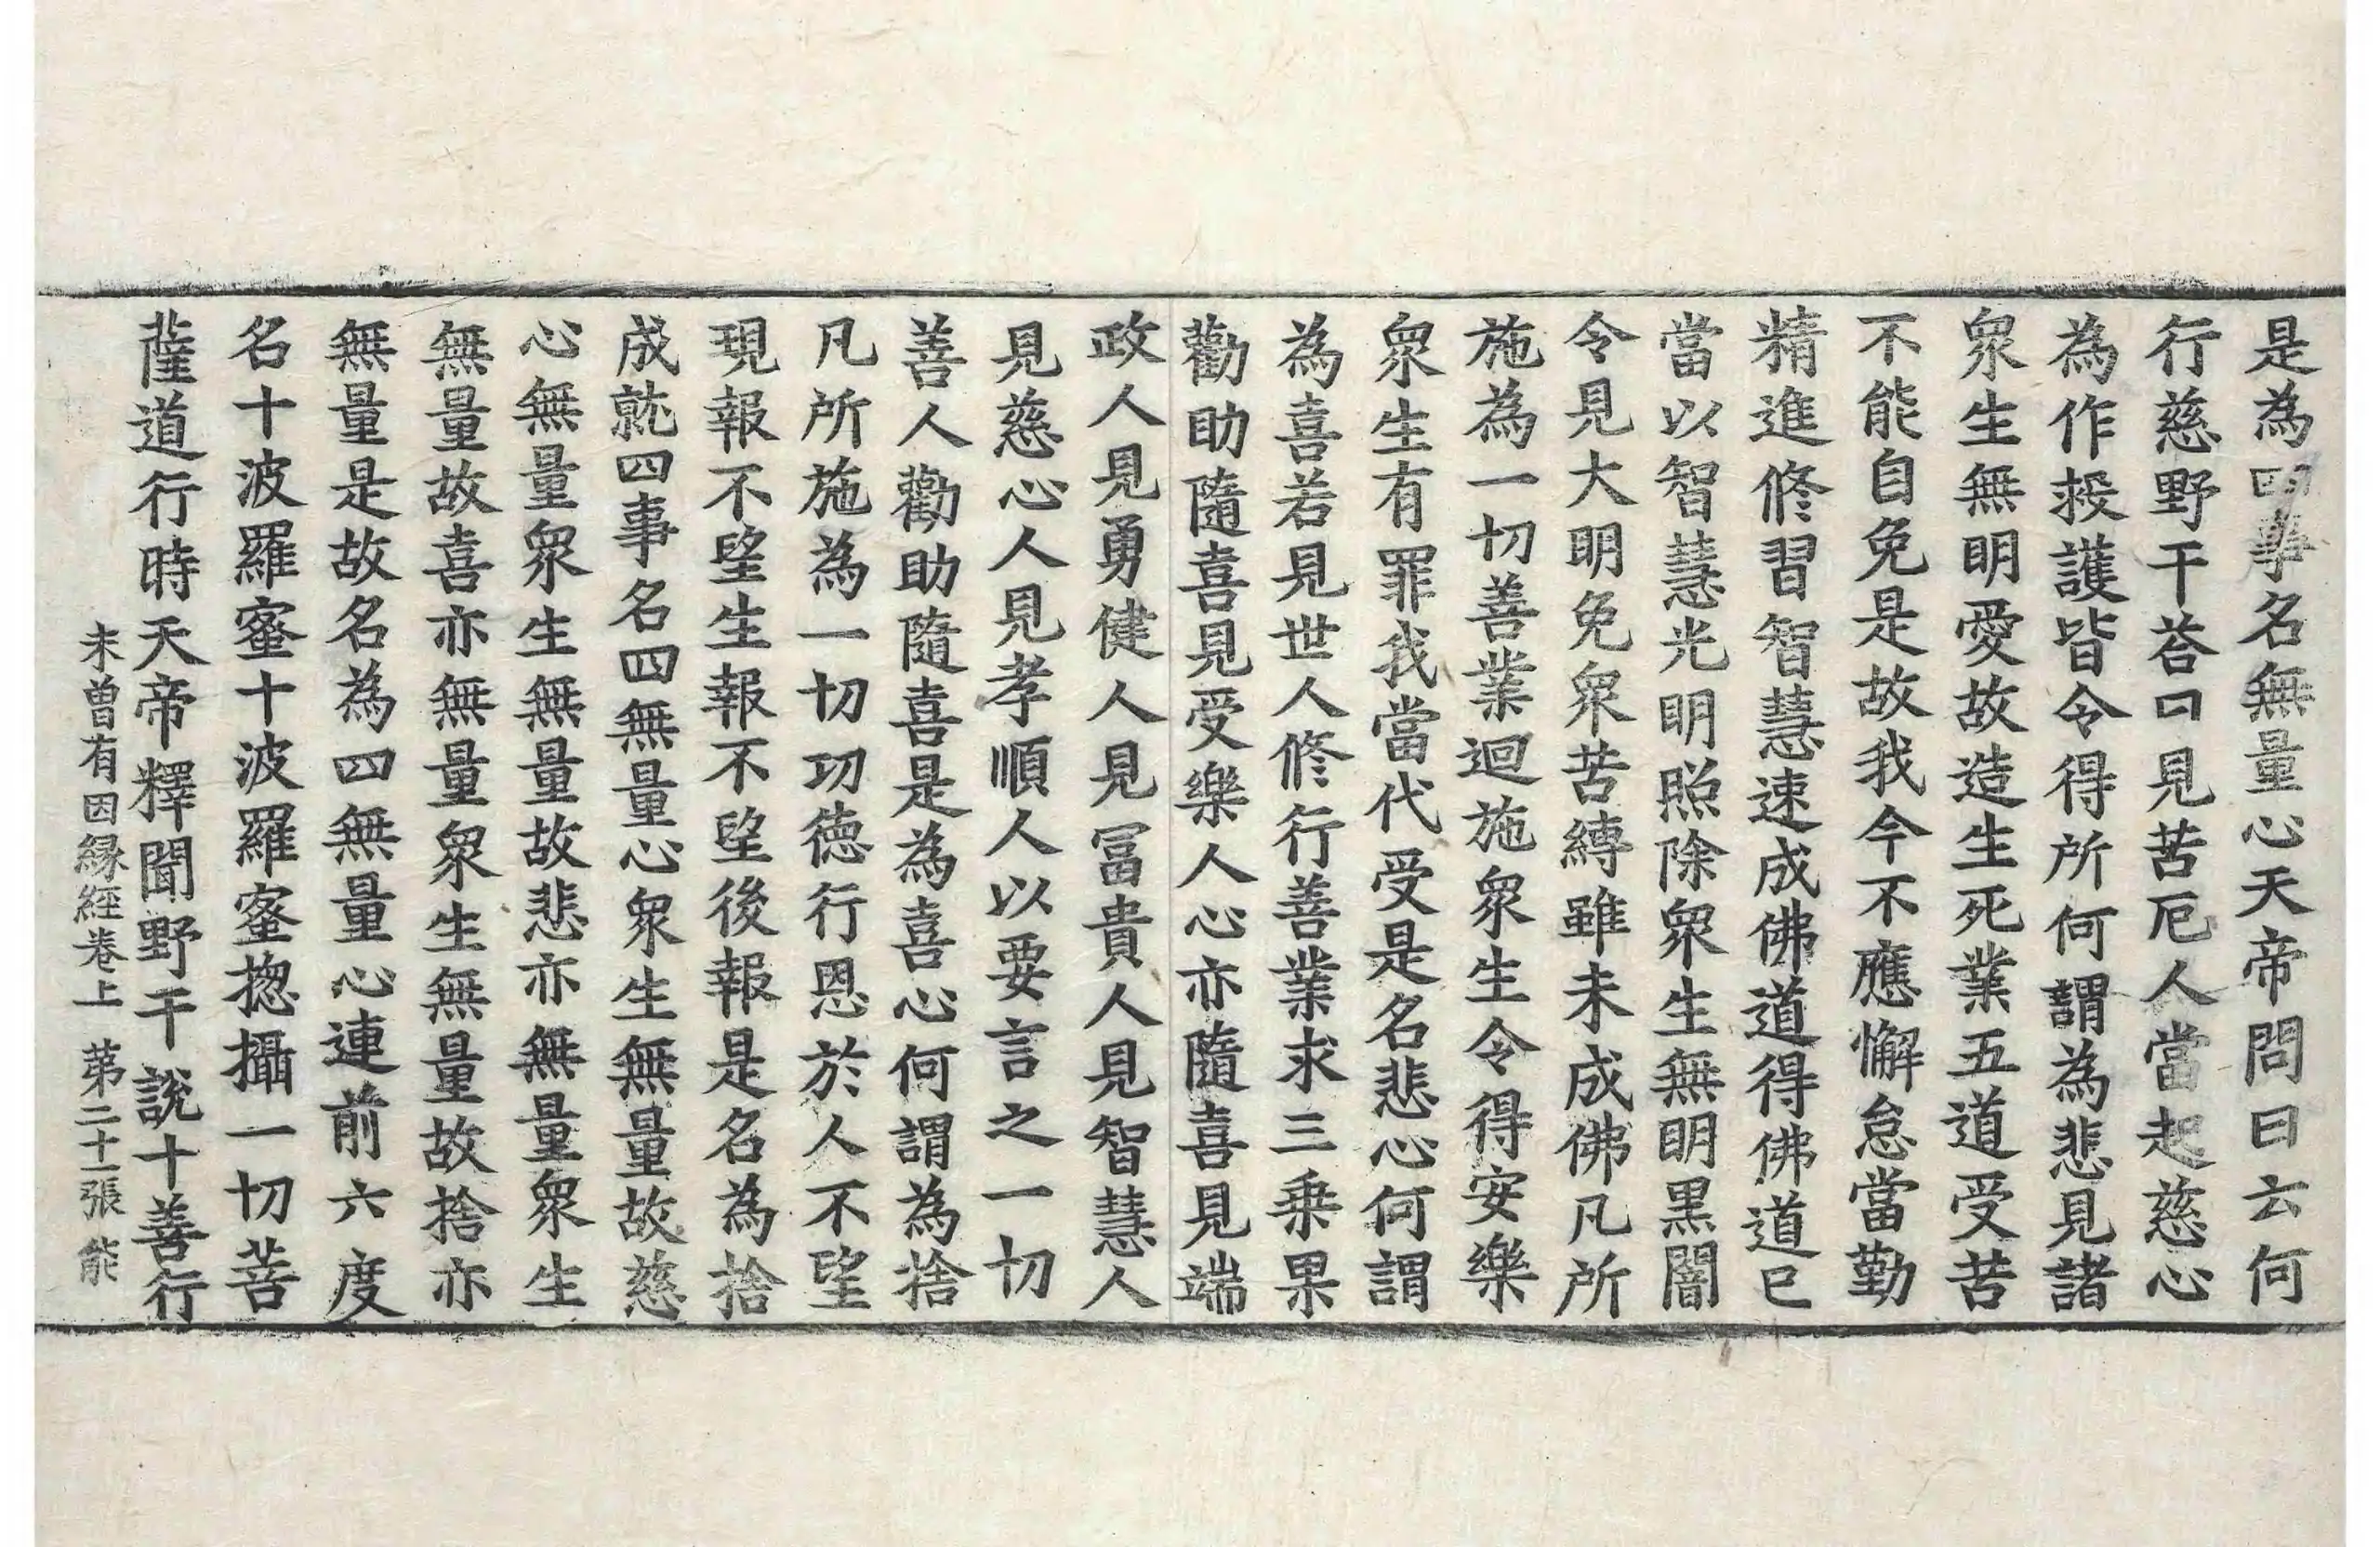 是為四事名無量心天帝問曰云何
行慈野干荅曰見苦厄人當起慈心
為作救護皆令得所何謂為悲見諸
衆生無明愛故造生死業五道受苦
不能自免是故我今不應懈怠當勤
精進修習智慧速成佛道得佛道已
當以智慧光明照除衆生無明黒闇
令見大明免衆苦縛雖未成佛凡所
施為一切善業迴施衆生令得安樂
衆生有罪我當代受是名悲心何謂
為喜若見世人修行善業求三乗果
勸助隨喜見受樂人心亦隨喜見端
政人見勇健人見冨貴人見智慧人
見慈心人見孝順人以要言之一切
善人勸助隨喜是為喜心何謂為捨
凡所施為一切功德行恩於人不望
現報不望生報不望後報是名為捨
成就四事名四無量心衆生無量故慈
心無量衆生無量故悲亦無量衆生
無量故喜亦無量衆生無量故捨亦
無量是故名為四無量心連前六度
名十波羅蜜十波羅蜜揔攝一切菩
薩道行時天帝釋聞野干說十善行
未曽有因縁經卷上 第二十一張 能